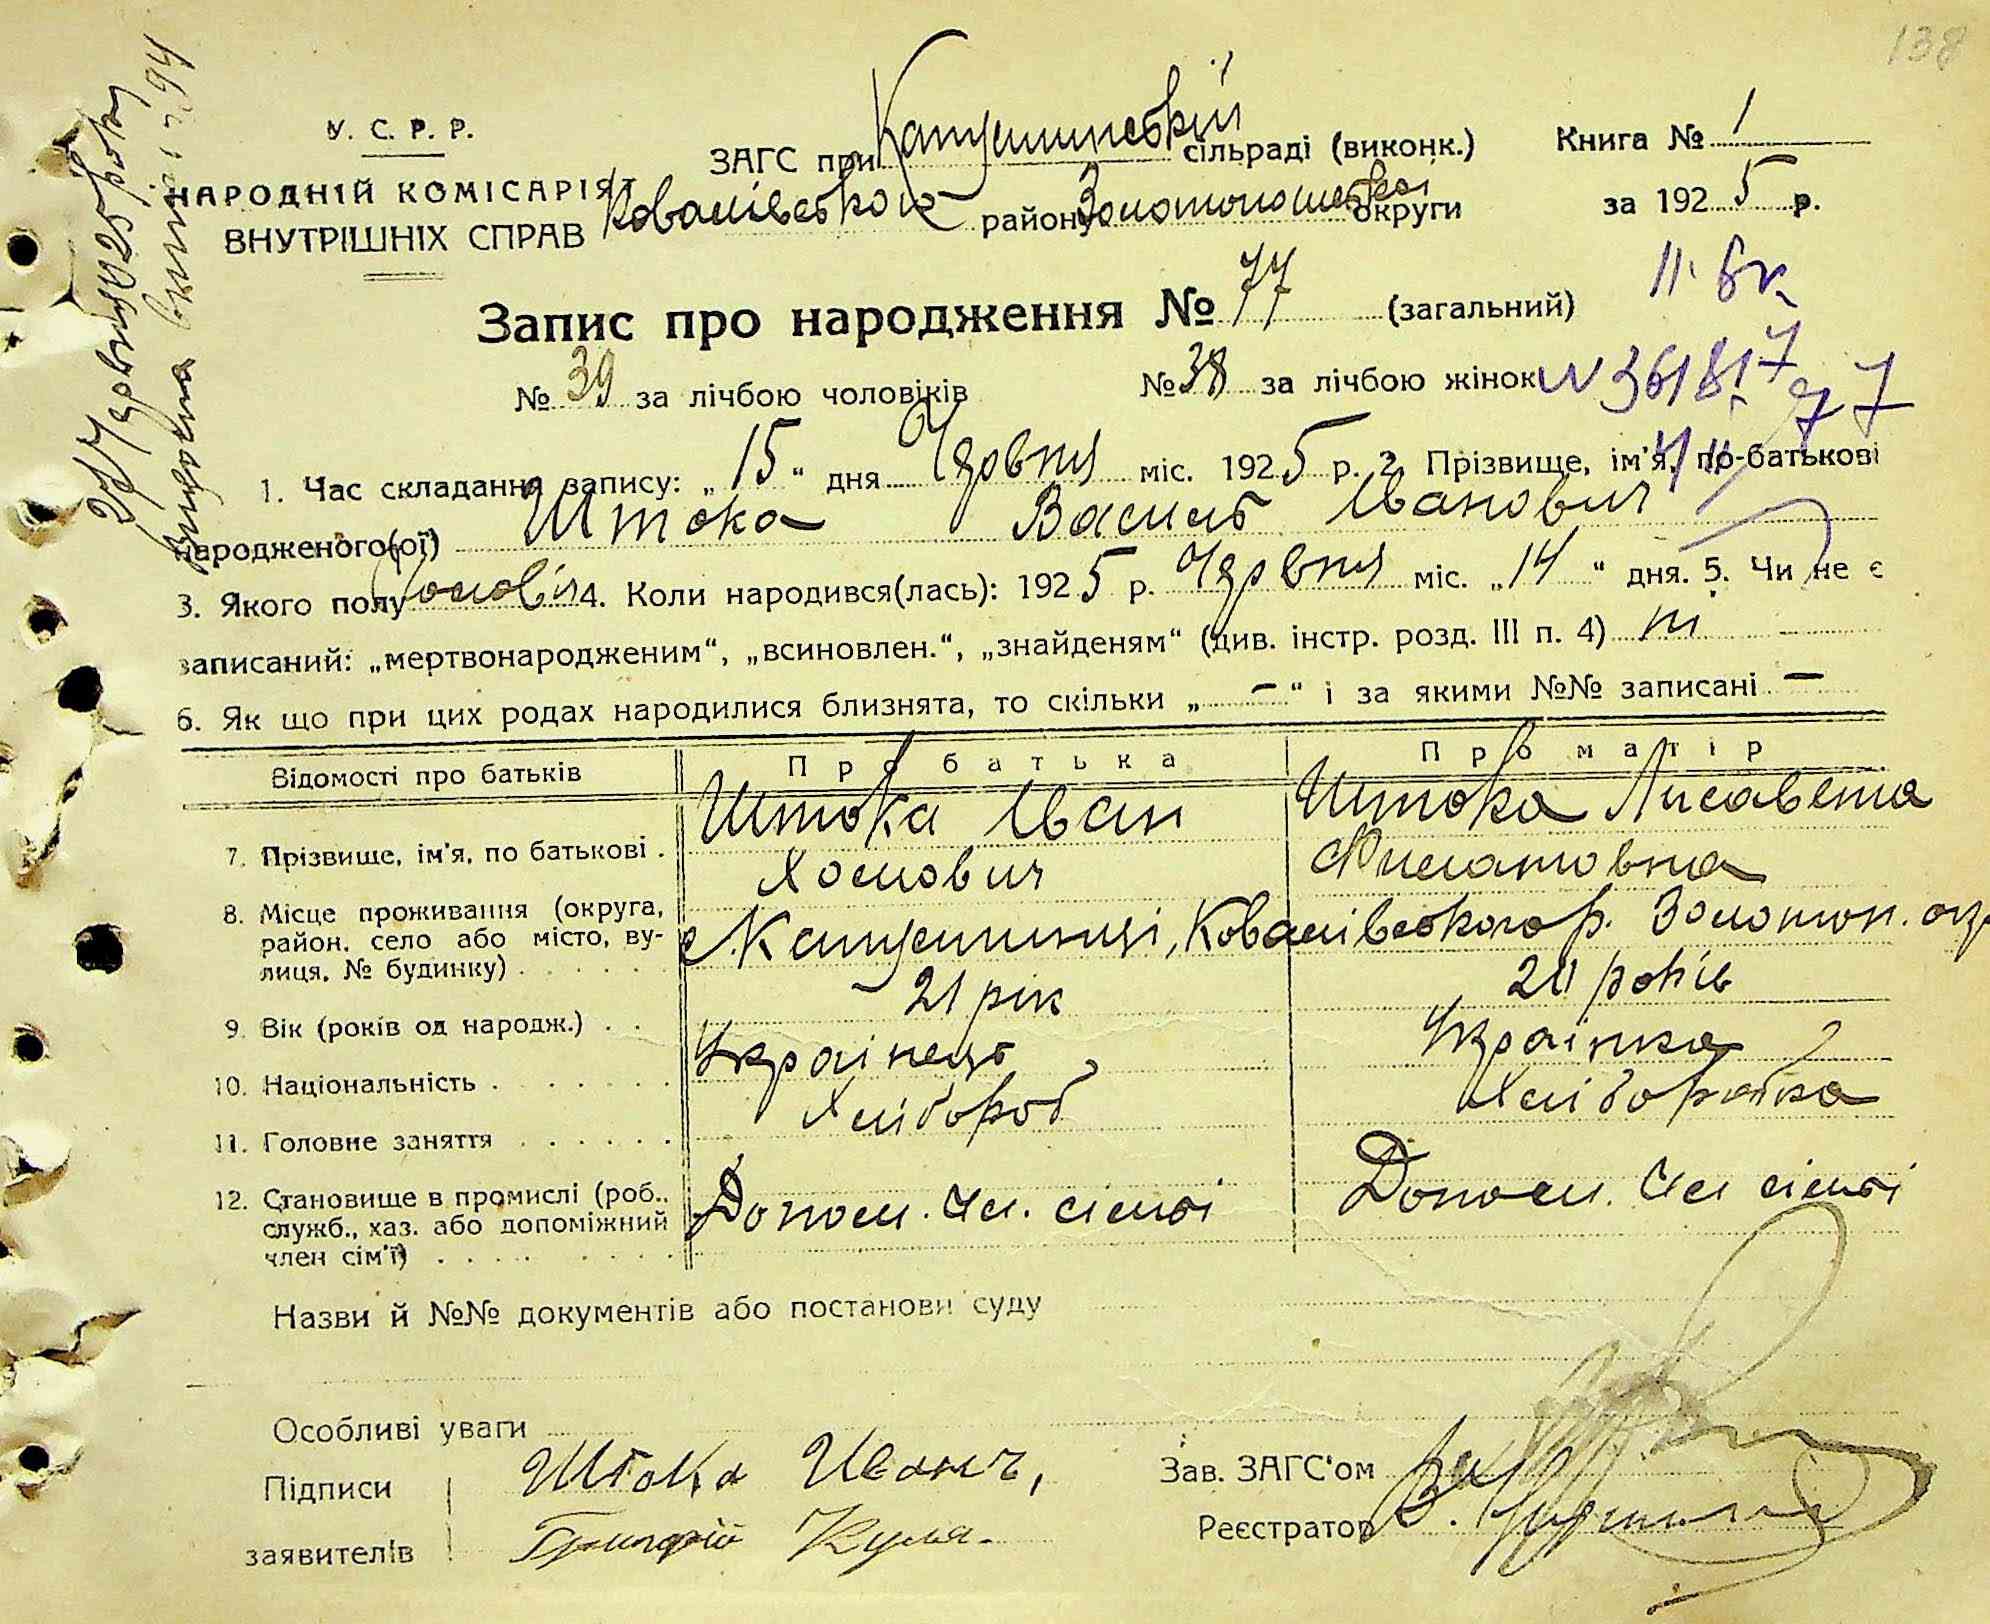 138
У. С. Р. Р.
НАРОДНІЙ КОМІСАРІЯТ
ВНУТРІШНІХ СПРАВ
ЗАГС при сільраді (виконк.)
Ковалівського району Золотоношської округи
Книга № 1
за 1925 р.
Запис про народження № 77 (загальний)
№ 39 за лічбою чоловіків № 38 за лічбою жінок
1. Час складання запису: „15“ дня Червня міс. 1925 р. 2. Прізвище, ім'я, по-батькові
народженого(ої) Штока Василь Іванович
3. Якого полу чолов 4. Коли народився(лась): 1925 р. Червня міс. „14“ дня. 5. Чи не є
записаний: „мертвонародженим“, „всиновлен.“, „знайденям“ (цив. інстр. розд. III п. 4) ні
6. Як що при цих родах народилися близнята, то скільки „ — “ і за якими №№ записані —
Відомості про батьків Про батька Про матір
7. Прізвище, ім'я, по батькові . Штока Іван Хомович Штока Лисавета Филатовна
8. Місце проживання (округа,
район, село або місто, ву-
лиця, № будинку) . . . . . . Ковалівського р. Золотон. окр
9. Вік (років од народж.) . . 21 рік 20 років
10. Національність . . . . . . . Українець Українка
11. Головне заняття . . . . . . Хлібороб Хліборобка
12. Становище в промислі (роб.,
служб., хаз. або допоміжний
член сім'ї) . . . . . . . . Допом. чл. сімьї Допом. чл сімьі
Назви й №№ документів або постанови суду
Особливі уваги
Підписи Штока Иван
заявителів Григорій Куля.
Зав. ЗАГС'ом
Реєстратор